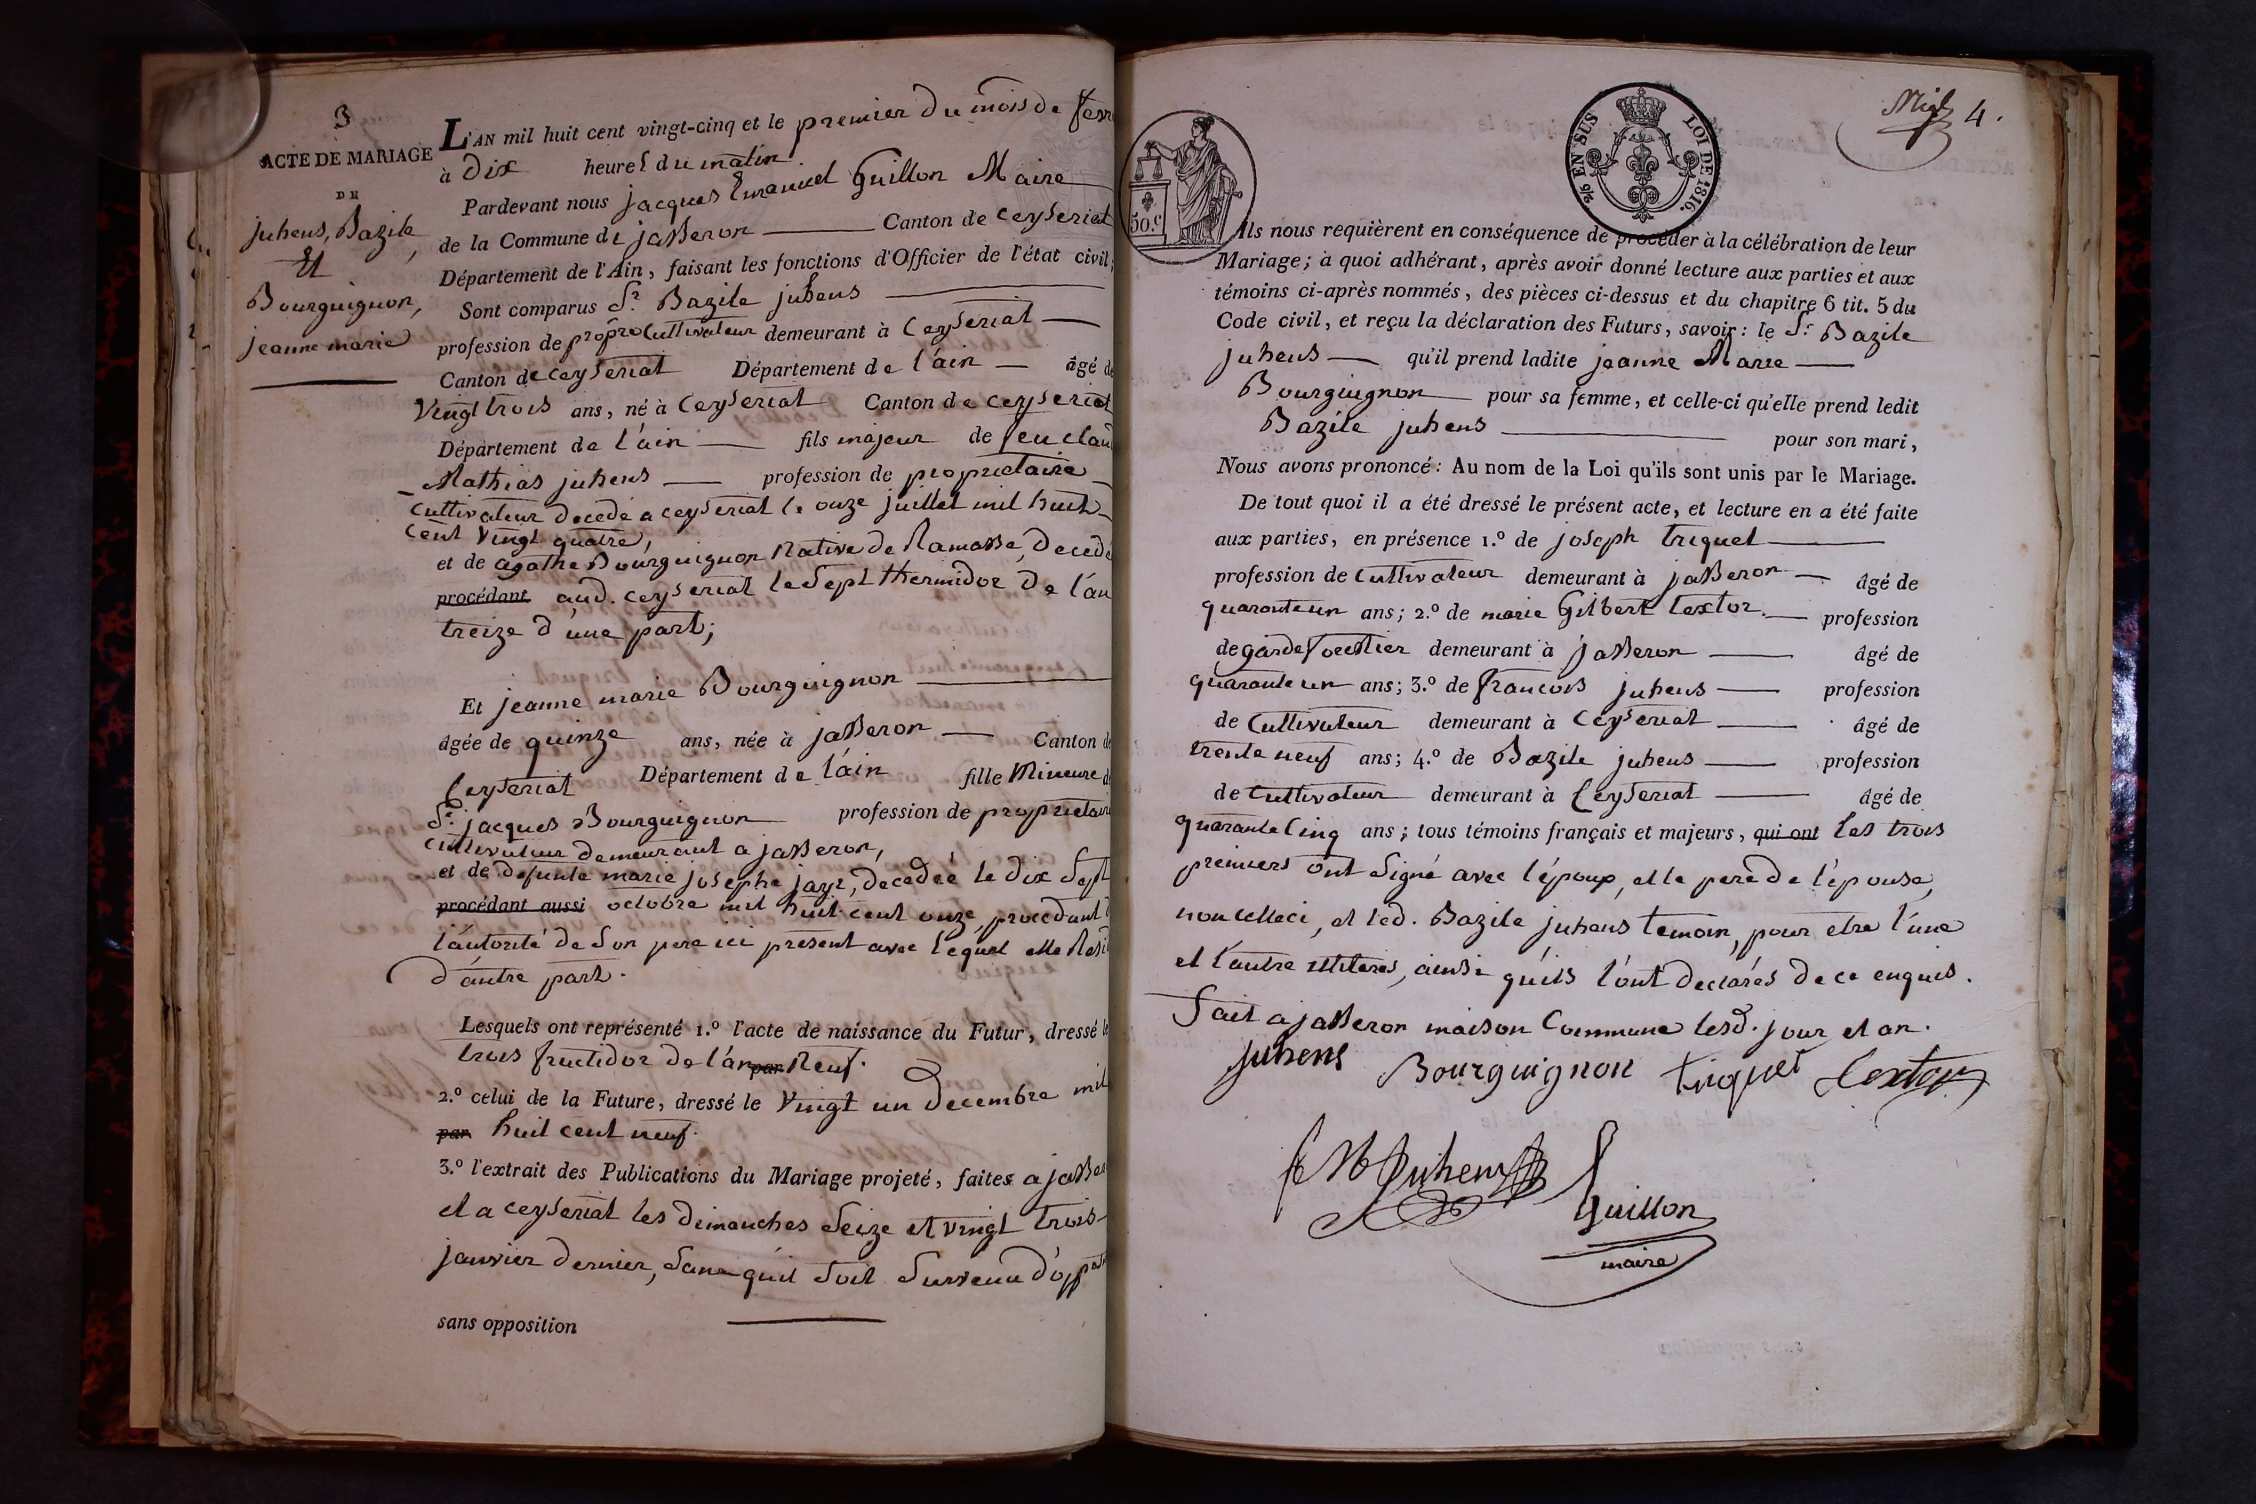 3
ACTE DE MARIAGE
DE
juhens, Bazile
Et
Bourguignon,
jeanne marie
L'AN mil huit cent vingt-cinq et le premier du mois de fevr
à dix heures du matin.
Pardevant nous jacques Emanuel Guillon Maire
de la Commune de jasseron Canton de ceyseriat
Département de l'Ain, faisant les fonctions d'Officier de l'état civil;
Sont comparus Sr. Bazile juhens
profession de propre Cultivateur demeurant à Ceyseriat
Canton de ceyseriat Département de l'ain âgé de
Vingt trois ans, né à Ceyseriat Canton de ceyseriat
Département de l'ain fils majeur de feu clau
Mathias juhens profession de proprietaire
cultivateur decedé a ceyseriat le onze juillet mil huit
cent vingt quatre,
et de agathe Bourguignon Native de Ramasse, decedé
procédant aud. ceyseriat le sept thermidor de l'an
treize d'une part;
Et jeanne marie Bourguignon
âgée de quinze ans, née à jasseron Canton de
Ceyseriat Département de l'ain fille Mineure de
Sr. jacques Bourguignon profession de proprietaire
cultivateur demeurant a jasseron,
et de defunte marie josephe jayr, decedée le dix sept
procédant aussi octobre mil huit cent onze, procedant d
l'autorité de son pere ici present avec lequel elle Resid
d'autre part.
Lesquels ont représenté 1.º l'acte de naissance du Futur, dressé le
trois fructidor de l'an par Neuf.
2.º celui de la Future, dressé le Vingt un Decembre mil
par huit cent neuf.
3.º l'extrait des Publications du Mariage projeté, faites a jasser
et a ceyseriat les dimanches Seize et vingt trois
janvier dernier, sans qu'il soit survenu d'opposit
sans opposition
50.c
5/10 EN SUS LOI DE 1816.
4.
Ils nous requièrent en conséquence de procéder à la célébration de leur
Mariage; à quoi adhérant, après avoir donné lecture aux parties et aux
témoins ci-après nommés, des pièces ci-dessus et du chapitre 6 tit. 5 du
Code civil, et reçu la déclaration des Futurs, savoir: le Sr. Bazile
juhens qu'il prend ladite jeanne Marie
Bourguignon pour sa femme, et celle-ci qu'elle prend ledit
Bazile juhens pour son mari,
Nous avons prononcé: Au nom de la Loi qu'ils sont unis par le Mariage.
De tout quoi il a été dressé le présent acte, et lecture en a été faite
aux parties, en présence 1.º de joseph triquet
profession de cultivateur demeurant à jasseron âgé de
quarante un ans; 2.º de marie Gilbert textor. profession
de garde forestier demeurant à jasseron âgé de
quarante un ans; 3.º de francois juhens profession
de Cultivateur demeurant à Ceyseriat âgé de
trente neuf ans; 4.º de Bazile juhens profession
de Cultivateur demeurant à Ceyseriat âgé de
quarante Cinq ans; tous témoins français et majeurs, qui ont les trois
premiers ont signé avec l'époux, et le pere de l'épouse,
non celleci, et led. Bazile juhens temoin, pour etre l'une
et l'autre illiteres, ainsi qu'ils l'ont declarés de ce enquis.
Fait a jasseron maison Commune lesd. jour et an.
juhens Bourguignon triquet textor
juhens
Guillon
maire